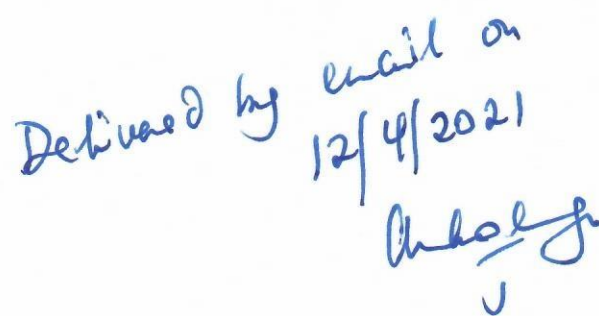 Delivered by email on
12/4/2021